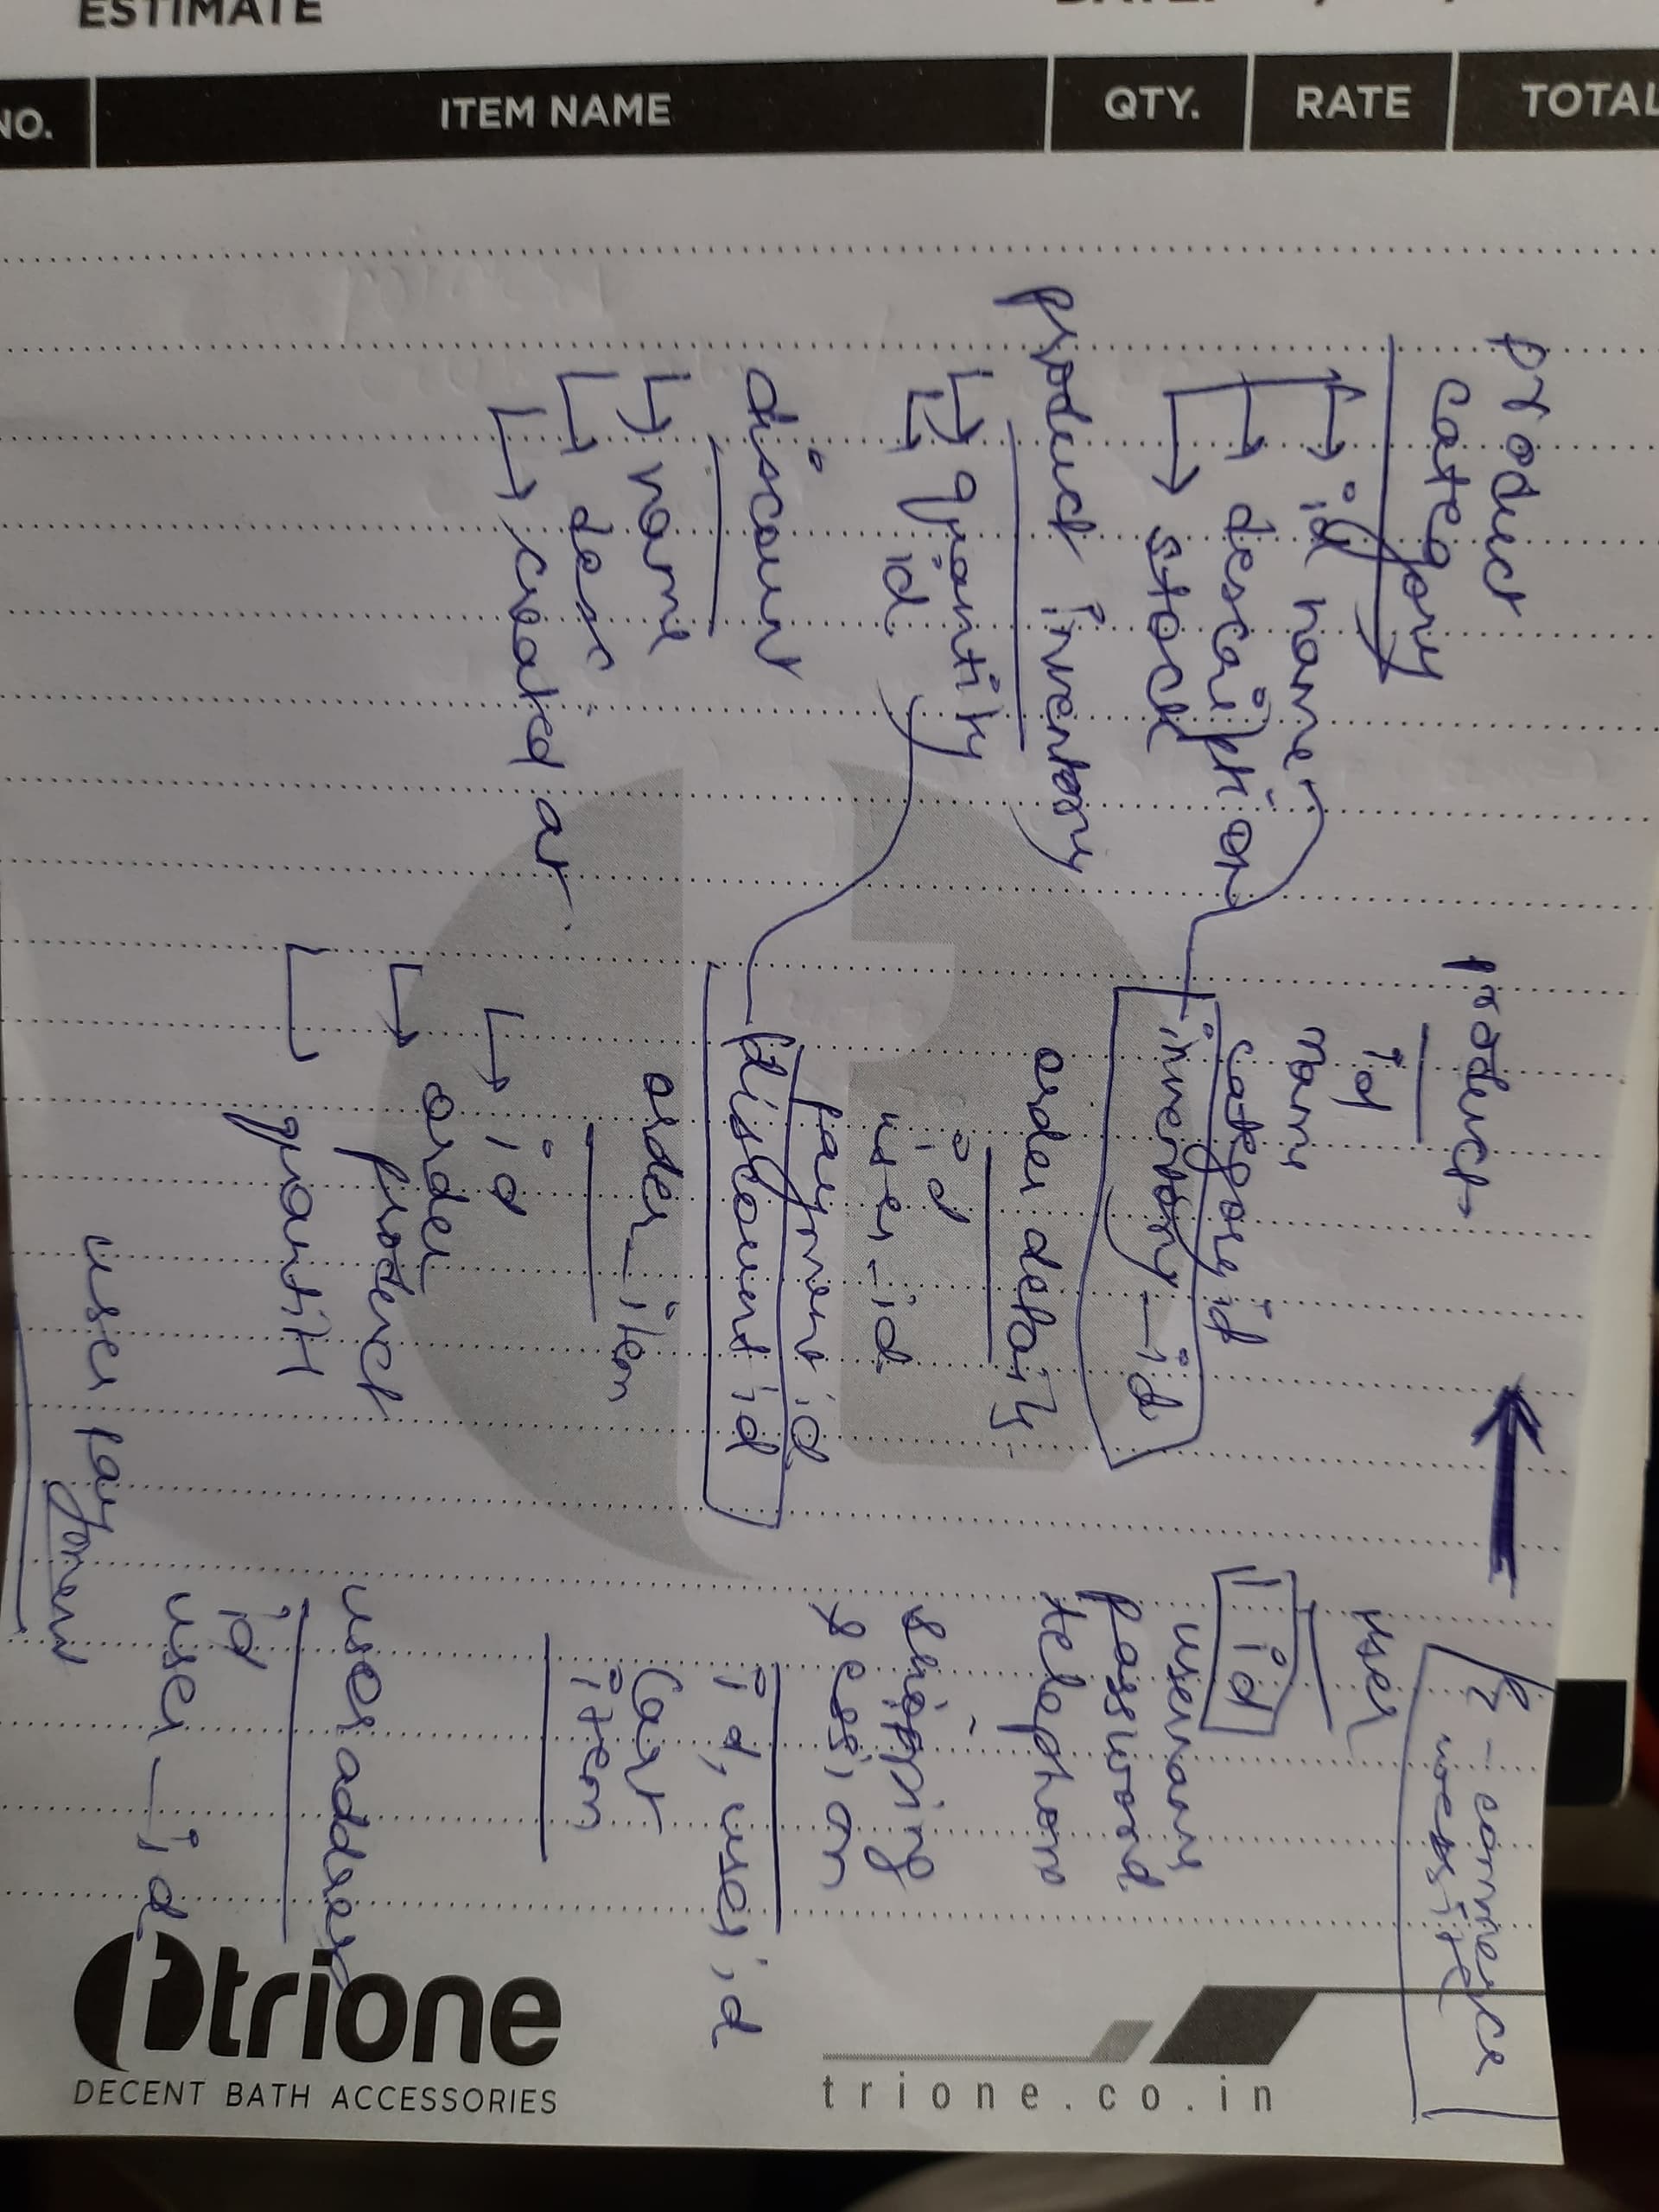 ESTIMATE
NO.
ITEM NAME
QTY.
RATE
TOTAL
product
category
id name
description
stock
product inventory
quantity
id
discount
name
desc
created at
product
id
name
category id
inventory_id
order details
id
user_id
payment id
discount id
order_item
id
order
product
E-commerce
website
user
id
password
telephone
shopping
session
id, user id
Cart
item
user address
id
user_id
user payment
trione
DECENT BATH ACCESSORIES
trione.co.in